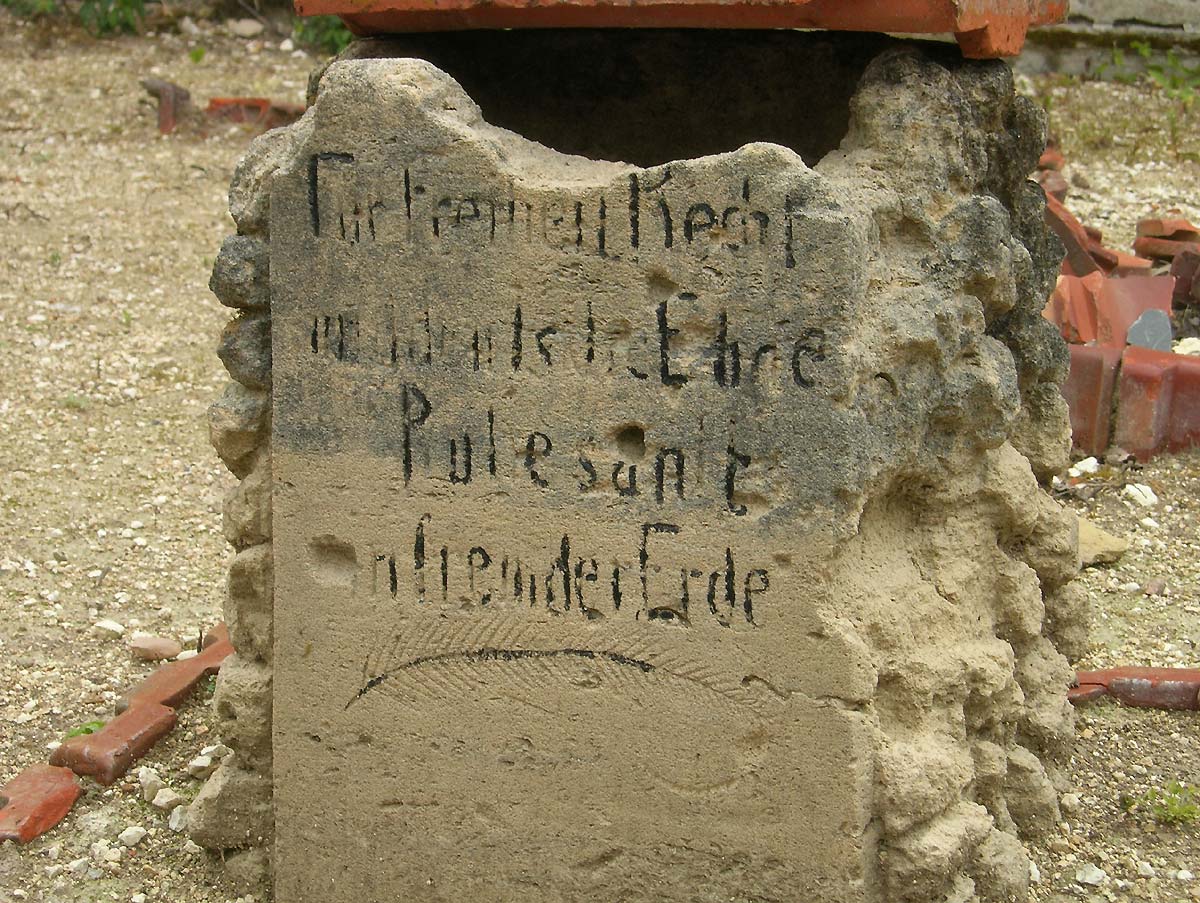 Für Kaiser Recht
und deutsche Ehre
Ruhe sanft
in fremder Erde